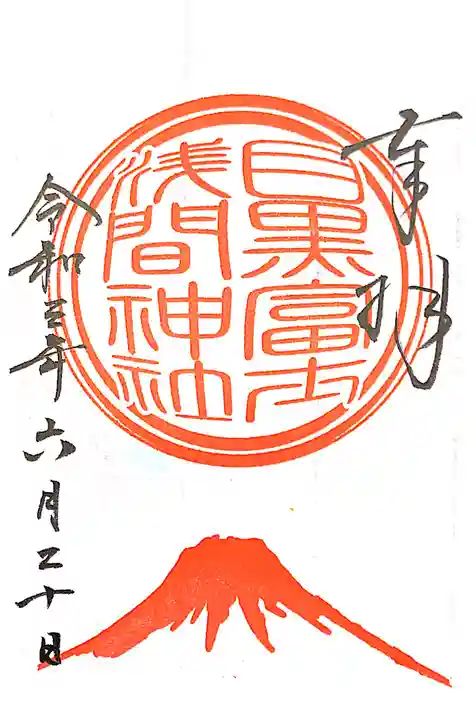 奉拝
目黒富士
浅間神社
令和三年六月二十日